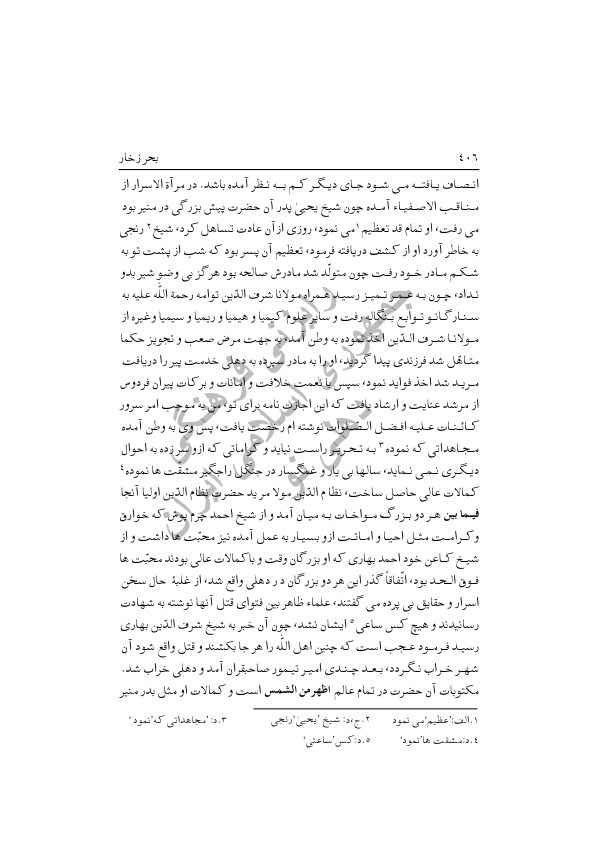 ٤٠٦
بحر زخار
انصاف یافته می شود جای دیگر کم به نظر آمده باشد. در مرآة الاسرار از
مناقب الاصفیاء آمده چون شیخ یحییٰ پدر آن حضرت پیش بزرگی در منیر بود
می رفت، او تمام قد تعظیم١ می نمود، روزی از آن عادت تساهل کرد، شیخ٢ رنجی
به خاطر آورد او از کشف دریافته فرمود، تعظیم آن پسر بود که شب از پشت تو به
شکم مادر خود رفت چون متولّد شد مادرش صالحه بود هرگز بی وضو شیر بدو
نداد، چون به عمر تمیز رسید همراه مولانا شرف الدّین توامه رحمة اللّه علیه به
سنارگانو توابع بنگاله رفت و سایر علوم کیمیا و هیمیا و ریمیا و سیمیا وغیره از
مولانا شرف الدّین اخذ نموده به وطن آمد، به جهت مرض صعب و تجویز حکما
متاهّل شد فرزندی پیدا گردید، او را به مادر سپرده به دهلی خدمت پیر را دریافت
مرید شد اخذ فواید نمود، سپس با نعمت خلافت و امانات و برکات پیران فردوس
از مرشد عنایت و ارشاد یافت که این اجازت نامه برای تو، من به موجب امر سرور
کائنات علیه افضل الصّلوات نوشته ام رخصت یافت، پس وی به وطن آمده
مجاهداتی که نموده٣ به تحریر راست نیاید و کراماتی که ازو سرزده به احوال
دیگری نمی نماید، سالها بی یار و غمگسار در جنگل راجگیر مشقت ها نموده٤
کمالات عالی حاصل ساخت، نظام الدّین مولا مرید حضرت نظام الدّین اولیا آنجا
فیما بین هر دو بزرگ مواخات به میان آمد و از شیخ احمد چرم پوش که خوارق
و کرامت مثل احیا و اماتت ازو بسیار به عمل آمده نیز محبّت ها داشت و از
شیخ کاعن خود احمد بهاری که او بزرگان وقت و باکمالات عالی بودند محبّت ها
فوق الحد بود، اتّفاقاً گذر این هر دو بزرگان در دهلی واقع شد، از غلبۀ حال سخن
اسرار و حقایق بی پرده می گفتند، علماء ظاهر بین فتوای قتل آنها نوشته به شهادت
رسانیدند و هیچ کس ساعی٥ ایشان نشد، چون آن خبر به شیخ شرف الدّین بهاری
رسید فرمود عجب است که چنین اهل اللّه را هر جا بکشند و قتل واقع شود آن
شهر خراب نگردد، بعد چندی امیر تیمور صاحبقران آمد و دهلی خراب شد.
مکتوبات آن حضرت در تمام عالم اظهر من الشمس است و کمالات او مثل بدر منیر
١. الف: 'عظیم' می نمود
٢. ج، د: شیخ 'یحییٰ' رنجی
٣. د: 'مجاهداتی که' نمود'
٤. د: مشقت ها 'نمود'
٥. د: کس 'ساعتی'
رایزنی فرهنگی
جمهوری اسلامی ایران
دهلی نو